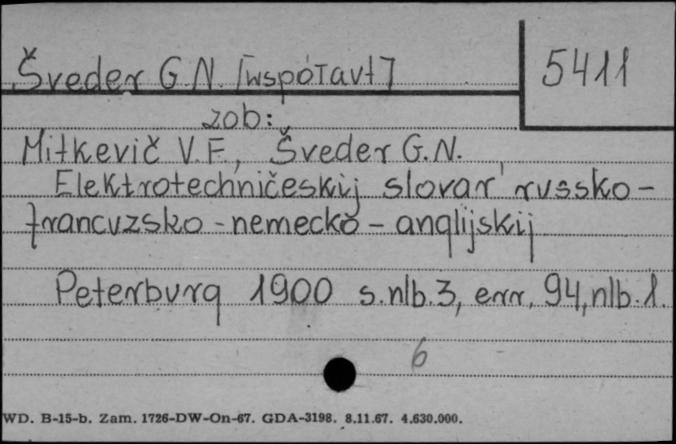 Šveder G.N. [współaut]
5411
zob:
Mitkevič V.F., Šveder G.N.
Elektrotechničeskij slovar' russko-
francuzsko-nemecko-anglijskij
Peterburg 1900 s.nlb.3, err, 94, nlb.1.
6
WD. B-15-b. Zam. 1726-DW-On-67. GDA-3198. 8.11.67. 4.630.000.